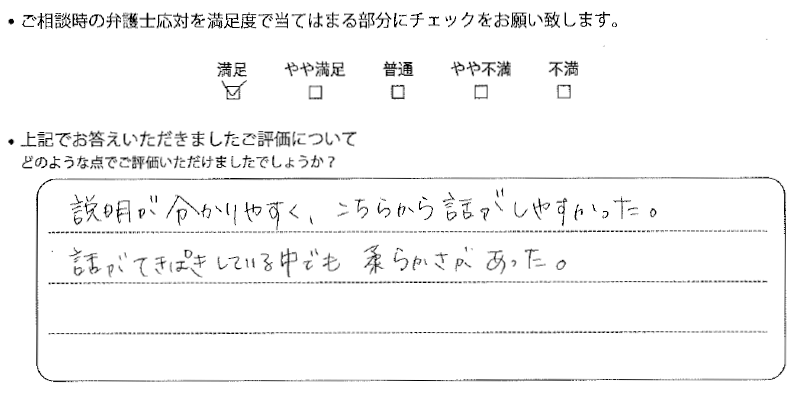 ・ご相談時の弁護士応対を満足度で当てはまる部分にチェックをお願い致します。
満足 やや満足 普通 やや不満 不満
☑ □ □ □ □
・上記でお答えいただきましたご評価について
どのような点でご評価いただけましたでしょうか?
説明が分かりやすく、こちらから話がしやすかった。
話がてきぱきしている中でも柔らかさがあった。